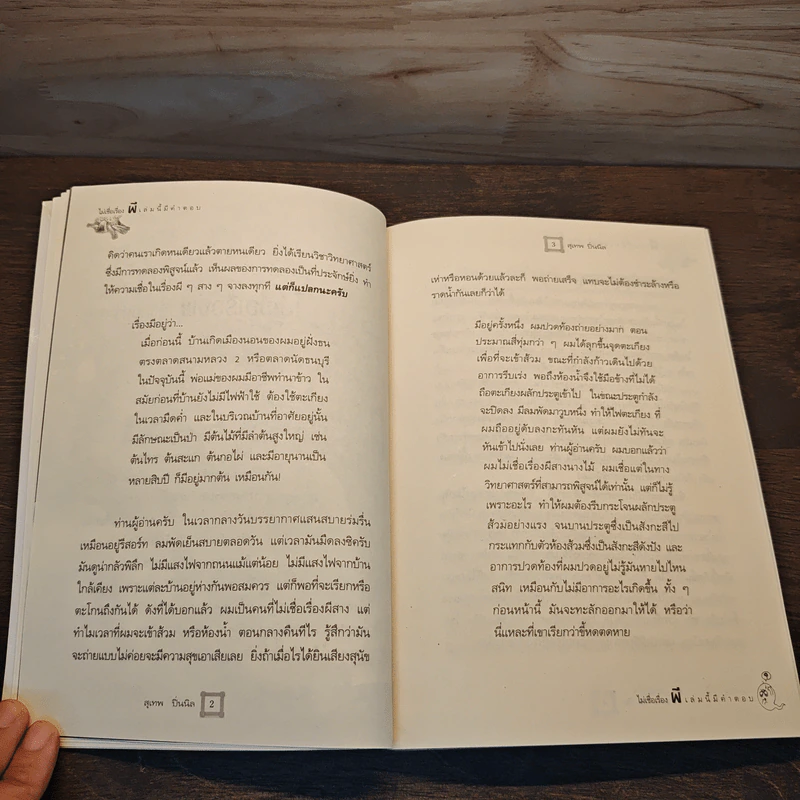 ไม่เชื่อเรื่อง ผี เล่มนี้มีคำตอบ
คิดว่าคนเราเกิดหนเดียวแล้วตายหนเดียว ยิ่งได้เรียนวิชาวิทยาศาสตร์
ซึ่งมีการทดลองพิสูจน์แล้ว เห็นผลของการทดลองเป็นที่ประจักษ์ยิ่ง ทำ
ให้ความเชื่อในเรื่องผี ๆ สาง ๆ จางลงทุกที แต่ก็แปลกนะครับ
เรื่องมีอยู่ว่า...
เมื่อก่อนนี้ บ้านเกิดเมืองนอนของผมอยู่ฝั่งธน
ตรงตลาดสนามหลวง 2 หรือตลาดนัดธนบุรี
ในปัจจุบันนี้ พ่อแม่ของผมมีอาชีพทำนาข้าว ใน
สมัยก่อนที่บ้านยังไม่มีไฟฟ้าใช้ ต้องใช้ตะเกียง
ในเวลามืดค่ำ และในบริเวณบ้านที่อาศัยอยู่นั้น
มีลักษณะเป็นป่า มีต้นไม้ที่มีลำต้นสูงใหญ่ เช่น
ต้นไทร ต้นสะแก ต้นกอไผ่ และมีอายุนานเป็น
หลายสิบปี ก็มีอยู่มากต้น เหมือนกัน!
ท่านผู้อ่านครับ ในเวลากลางวันบรรยากาศแสนสบายร่มรื่น
เหมือนอยู่รีสอร์ท ลมพัดเย็นสบายตลอดวัน แต่เวลามันมืดลงซิครับ
มันดูน่ากลัวพิลึก ไม่มีแสงไฟจากถนนแม้แต่น้อย ไม่มีแสงไฟจากบ้าน
ใกล้เคียง เพราะแต่ละบ้านอยู่ห่างกันพอสมควร แต่ก็พอที่จะเรียกหรือ
ตะโกนถึงกันได้ ดังที่ได้บอกแล้ว ผมเป็นคนที่ไม่เชื่อเรื่องผีสาง แต่
ทำไมเวลาที่ผมจะเข้าส้วม หรือห้องน้ำ ตอนกลางคืนทีไร รู้สึกว่ามัน
จะถ่ายแบบไม่ค่อยจะมีความสุขเอาเสียเลย ยิ่งถ้าเมื่อไรได้ยินเสียงสุนัข
สุเทพ ปิ่นนิล 2
3 สุเทพ ปิ่นนิล
เห่าหรือหอนด้วยแล้วละก็ พอถ่ายเสร็จ แทบจะไม่ต้องชำระล้างหรือ
ราดน้ำกันเลยก็ว่าได้
มีอยู่ครั้งหนึ่ง ผมปวดท้องถ่ายอย่างมาก ตอน
ประมาณสี่ทุ่มกว่า ๆ ผมได้ลุกขึ้นจุดตะเกียง
เพื่อที่จะเข้าส้วม ขณะที่กำลังก้าวเดินไปด้วย
อาการรีบเร่ง พอถึงห้องน้ำจึงใช้มือข้างที่ไม่ได้
ถือตะเกียงผลักประตูเข้าไป ในขณะประตูกำลัง
จะปิดลง มีลมพัดมาวูบหนึ่ง ทำให้ไฟตะเกียง ที่
ผมถืออยู่ดับลงกะทันหัน แต่ผมยังไม่ทันจะ
หันเข้าไปนั่งเลย ท่านผู้อ่านครับ ผมบอกแล้วว่า
ผมไม่เชื่อเรื่องผีสางนางไม้ ผมเชื่อแต่ในทาง
วิทยาศาสตร์ที่สามารถพิสูจน์ได้เท่านั้น แต่ก็ไม่รู้
เพราะอะไร ทำให้ผมต้องรีบกระโจนผลักประตู
ส้วมอย่างแรง จนบานประตูซึ่งเป็นสังกะสีไป
กระแทกกับตัวห้องส้วมซึ่งเป็นสังกะสีดังปัง และ
อาการปวดท้องที่ผมปวดอยู่ไม่รู้มันหายไปไหน
สนิท เหมือนกับไม่มีอาการอะไรเกิดขึ้น ทั้ง ๆ
ก่อนหน้านี้ มันจะทะลักออกมาให้ได้ หรือว่า
นี่แหละที่เขาเรียกว่าขี้หดตดหาย
ไม่เชื่อเรื่อง ผี เล่มนี้มีคำตอบ